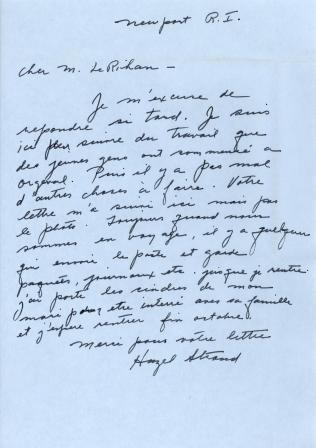 Newport R.I.
Cher M. LeRihan —
Je m'excuse de
repondre si tard. Je suis
ici pour suivre du travail que
des jeunes gens ont commencé a
Orgeval. Puis il y a pas mal
d'autres choses à faire. Votre
lettre m'a suivi ici mais pas
le photo. Toujours quand nous
sommes en voyage, il y a quelquun
qui envoie le poste et garde
paquets, journaux etc. jusque je rentre
J'ai porté les cindres de mon
mari pour etre interré avec sa famille
et j'espere rentrer fin octobre.
Merci pour votre lettre
Hazel Strand